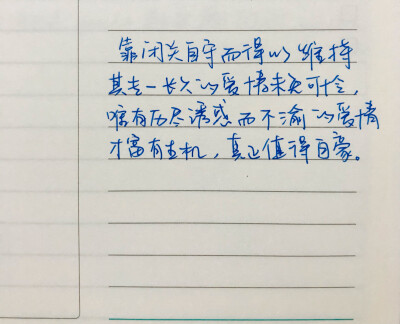 靠闭关自守而得以维持
其专一长久的爱情未免可怜，
唯有历尽诱惑而不渝的爱情
才富有生机，真正值得自豪。